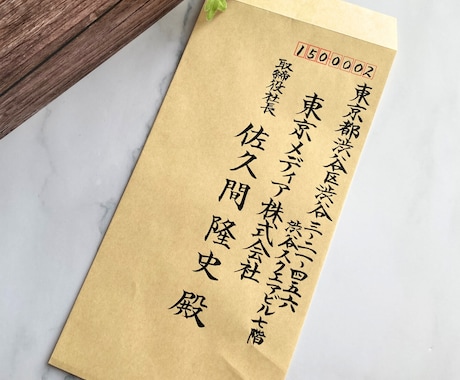 1500002
東京都渋谷区渋谷三、二一、四五六
渋谷スクエアビル七階
東京メディア株式会社
取締役社長
佐久間隆史殿